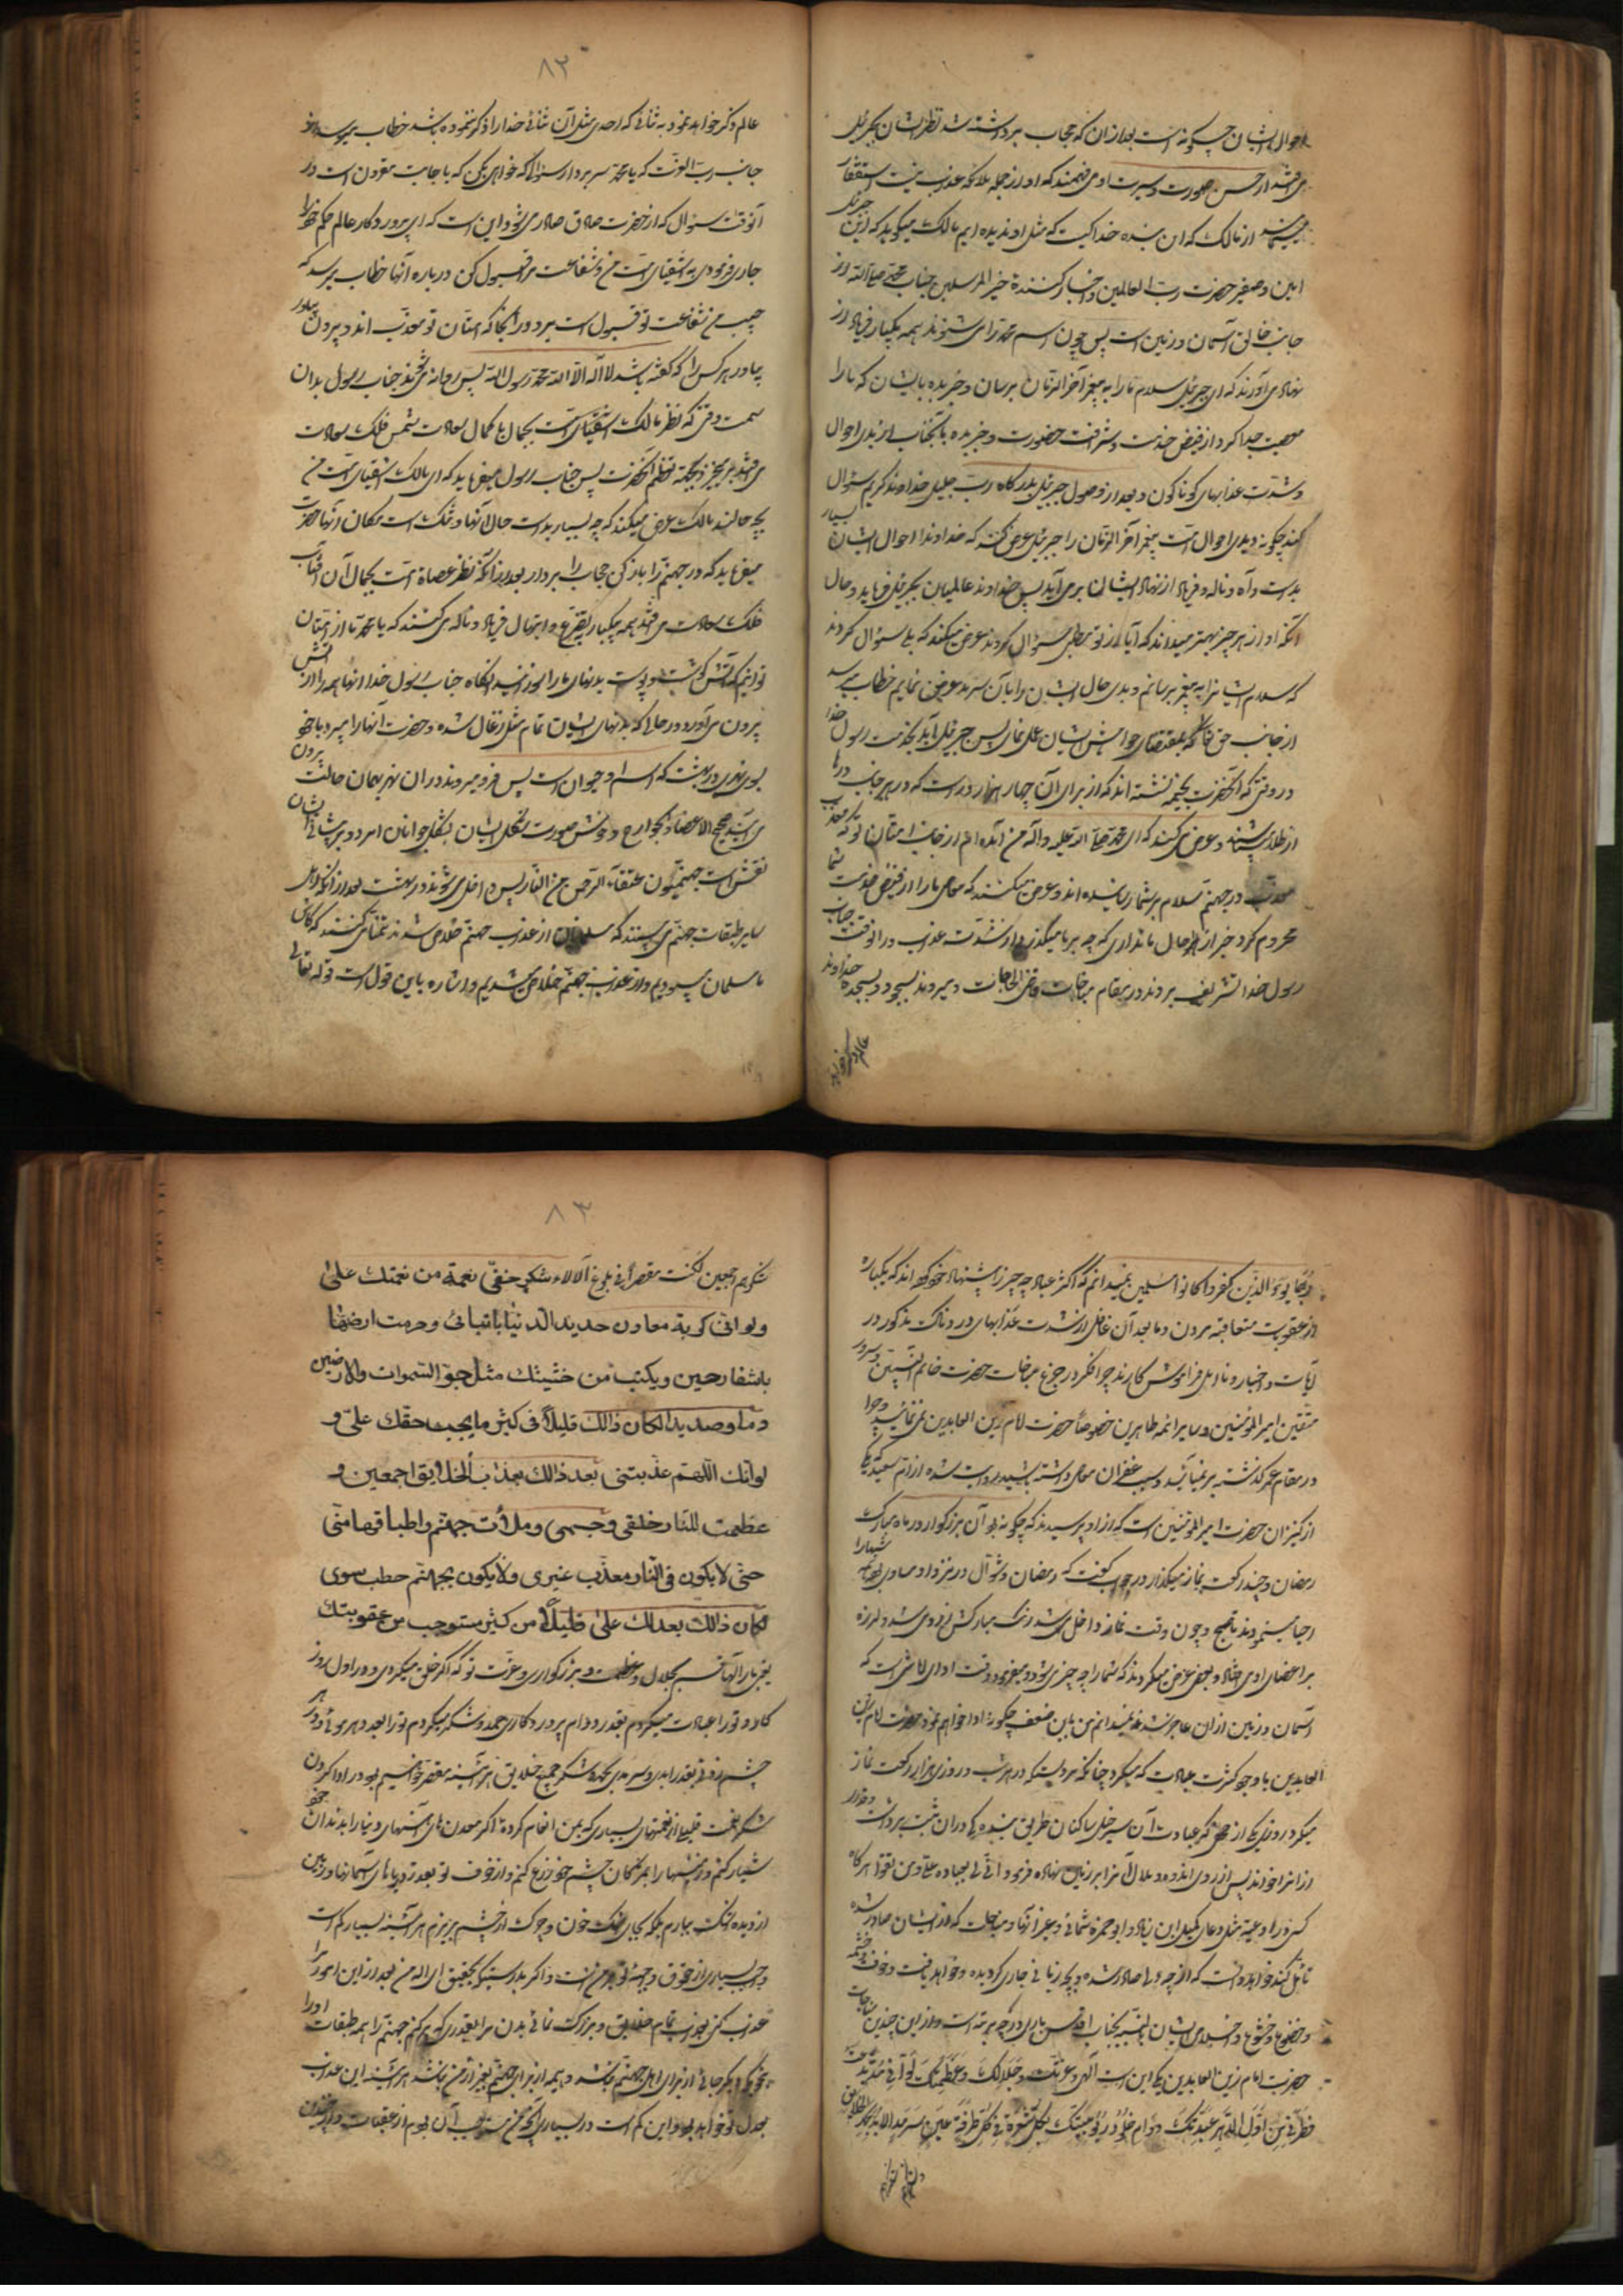 احوال ایشان چگونه است بعد از آن که حجاب برداشته شد نظر ایشان بجبرئیل
می افتد از حسن صورت و سیرت او می فهمند که او از جمله ملائکه عذاب نیست استفسار
از مالک که این بنده خدا کیست که مثل او ندیده ایم مالک میگوید که این جبرئیل
امین و سفیر حضرت رب العالمین و اخبار کننده خیر المرسلین جناب محمد صلی الله از
جانب خالق آسمان و زمین است پس چون اسم محمد را می شنوند همه یکبار فریاد از
نهاد می آورند که ای جبرئیل سلام ما را به پیغمبر آخر الزمان برسان و خبر بده بایشان که ما را
معصیت جدا کرد از فیض خدمت و شرافت حضورت و خبر بده بآنجناب از بدی احوال
و شدت عذابهای گوناگون و بعد از وصول جبرئیل بدرگاه رب جلیل خداوند کریم سؤال
کند چگونه دیدی احوال امت پیغمبر آخر الزمان را جبرئیل عرض کند که خداوندا احوال ایشان بسیار
بد است و آه و ناله و فریاد از نهاد ایشان بر می آید پس خداوند عالمیان بجبرئیل فرماید و حال
آنکه او از هر چیز بهتر میداند که آیا از تو مطلبی سؤال کردند عرض میکند که بلی سؤال کردند
که سلام ایشان را به پیغمبر برسانم و بدی حال ایشان را بآن سرور عرض نمایم خطاب میرسد
از جانب حق تعالی که بمقتضای خواهش ایشان عمل نمای پس جبرئیل بیاید بخدمت رسول خدا
در وقتی که آنحضرت بخیمه نشسته اند که از برای آن چهار هزار در است که در هر جانب درها
از طلا و عرض می کند که ای محمد صلی الله علیه و آله من آمده ام از جانب امتان تو که
معذب در جهنم سلام بر شما رسانیده اند و عرض میکنند که معاصی ما را از فیض خدمت شما
محروم کرد خبر از احوال ما نداری که چه بر ما میگذرد از شدت عذاب در آنوقت جناب
رسول خدا تشریف بردند در مقام مناجات قاضی الحاجات و میروند بسجود و بسجده خداوند
عالم ذکر خواهد
۸۲
عالم ذکر خواهد نمود به ثنائی که احدی مثل آن ثنائی خدا را ذکر ننموده باشد خطاب میرسد از
جانب رب العزت که یا محمد سر بردار سؤال که خواهی بکن که با جابت مقرون است در
آنوقت سؤال که از حضرت صادر می شود این است که ای پروردگار عالم حکم خود را
جاری فرمودی به اشقیای امت من و شفاعت مرا قبول کن درباره آنها خطاب میرسد که
حبیب من شفاعت تو قبول است برو در آنجا که امتان تو معذب اند و بیرون بیاور
بیاور هر کس را که گفته باشد لا اله الا الله محمد رسول الله پس روانه می شوند جناب رسول بدان
سمت وقتی که نظر مالک اشقیای امت بجمال با کمال سعادت شمس فلک سعادت
می افتد بر میخیزد بجهة تعظیم آنحضرت پس جناب رسول میفرماید که ای مالک اشقیای امت من
بچه حالند مالک عرض میکند که چه بسیار بد است حال آنها و تنگ است مکان آنها حضرت
میفرماید که در جهنم را باز کن حجاب را بردار بعد از آنکه نظر عصاة امت بجمال آن آفتاب
فلک سعادت می افتد همه یکبار بتضرع و ابتهال فریاد و ناله می کنند که یا محمد ما از امتان
توایم که آتش گوشت و پوست بدنهای ما را سوزانید آنگاه جناب رسول خدا آنها همه را از آتش
بیرون می آورد در حالی که بدنهای ایشان تمام مثل زغال شده و حضرت آنها را میبرد با خود
بسوی نهری در بهشت که اسم او حیوان است پس فرو میروند در آن نهر بهمان حالت بیرون
می آیند صحیح الاعضا و الجوارح و خوش صورت بشکل ایشان بشکل جوانان امرد و بر پیشانی ایشان
نقش است جهنمیون عتقاء الرحمن من النار پس داخل می شوند در بهشت بعد از آنکه اهل
سایر طبقات جهنم می بینند که مسلمانان از عذاب جهنم خلاص شدند تمنا می کنند که کاش
ما مسلمان میبودیم و از عذاب جهنم خلاص میشدیم و اشاره باین قول است قوله تعالی
ربما یود الذین کفروا لو کانوا مسلمین نمیدانم که اکثر عباد چه چیز را پیشنهاد خود کرده اند که یکباره
از عقوبت متعاقبه مردن و ما بعد آن غافل از شدت عذابهای دردناک مذکور در
آیات و اخبار و نار اهل فراموش کارند چرا فکر در جزع مناجات حضرت خاتم النبیین و سرور
متقین امیر المؤمنین و سایر ائمه طاهرین خصوصا حضرت امام زین العابدین نمی نمائید و چرا
در مقام عمر گذشته بر نمیائید و سبب غفران معاصی داشته باشید روایت شده از ام سعید یکی
از کنیزان حضرت امیر المؤمنین است که از او پرسیدند که چگونه بود آن بزرگوار در ماه مبارک
رمضان و چند رکعت نماز میگذارد در جواب گفت که رمضان و شوال در نزد او مساوی بود شبها را
احیا مینمودند تا صبح و چون وقت نماز داخل می شد رنگ مبارکش زرد می شد و لرزه
بر اعضای او می افتاد و بعضی عرض میکردند که شما را چه چیز می شود میفرمود وقت ادای امانتی است که
آسمان و زمین از آن عاجز شدند نمیدانم من باین ضعف چگونه ادا خواهم نمود حضرت امام زین
العابدین با وجود کثرت عبادت که میکرد چنانکه مرویست که در هر شب و روزی هزار رکعت نماز
میکرد روزی یکی از عبادت آن سرخیل ساکنان طریق بنده که در آن ثبت برداشت و قدری
از آن را خواند پس از روی اندوه و ملال آنرا بر زمین نهاده فرمود انی لی بعبادة علی من یقوا هر گاه
کسی در ادعیه مثل دعای کمیل ابن زیاد و ابو حمزه ثمالی و غیر آنها و مناجات که از ایشان صادر شده
تامل کند خواهد دانست که آنچه از ما صادر شده و بچه زبانی جاری گردیده و خواهد یافت و خوف و خشیه
و خضوع و خشوع و اخلاص ایشان بالنسبه بجناب اقدس باری در چه مرتبه است و از این چندین مناجات
حضرت امام زین العابدین یکی این است الهی و عزتک و جلالک و عظمتک لو انی منذ بدعت
فطرتی من اول الدهر عبدتک دوام خلود ربوبیتک بکل شعرة فی کل طرفة عین سرمد الابد بحمد الخلایق
۸۳
شکرهم اجمعین لکنت مقصرا فی بلوغ الالاء شکر خفی نعمة من نعمتک علی
ولو انی کربت معادن حدید الدنیا بانیابی وحرثت ارضها
باشفار عینی وبکیت من خشیتک مثل بحور السموات والارضین
دما وصدیدا لکان ذالک قلیلا فی کثیر ما یجب حقک علی و
لو انک اللهم عذبتنی بعد ذالک بعذاب الخلایق اجمعین و
عظمت للنار خلقی وجسمی وملأت جهنم واطباقها منی
حتی لا یکون فی النار معذب غیری ولا یکون بجهنم حطب سوی
لکان ذالک بعدلک علی قلیلا من کثیر مستوجب من عقوبتک
یعنی بار الها قسم بجلال و عظمت و بزرگواری و عزت تو که اگر خلق میکردی در اول روز
کار و تو را عبادت میکردم بقدر دوام پروردگاری حمد و شکر میکردم تو را بعدد هر موئی و در هر
چشم زدنی بقدر ابدی و سرمدی بحمد و شکر جمیع خلایق هر آینه مقصر خواهم بود در ادا کردن
شکر نعمت قلیلی از نعمتهای بسیاری که بمن انعام کرده و اگر معدن های آهنهای دنیا را بدندان خود
شیار کنم و زمینها را بمژکان چشم خود زرع کنم و از خوف تو بقدر دریاهای آسمانها و زمین
از دیده اشک ببارم بلکه بجای اشک خون و چرک از چشم بریزم هر آینه بسیار کم است
در جنب بسیاری از حقوق واجبه تو بر من است و اگر بدرستی که بتحقیق ای اله من بعد از این امور مرا
عذاب کنی بعذاب تمام خلایق و بزرگ نمائی بدن مرا بقدری که پر کنم جهنم را همه طبقات او را
بنحوی که دیگر جائی از برای اهل جهنم نباشد و هیمه از برای جهنم بغیر از من نباشد هر آینه این عذاب
بعدل تو خواهد بود و این کم است در بسیاری آنچه من مستوجب آن بودم از عقوبات